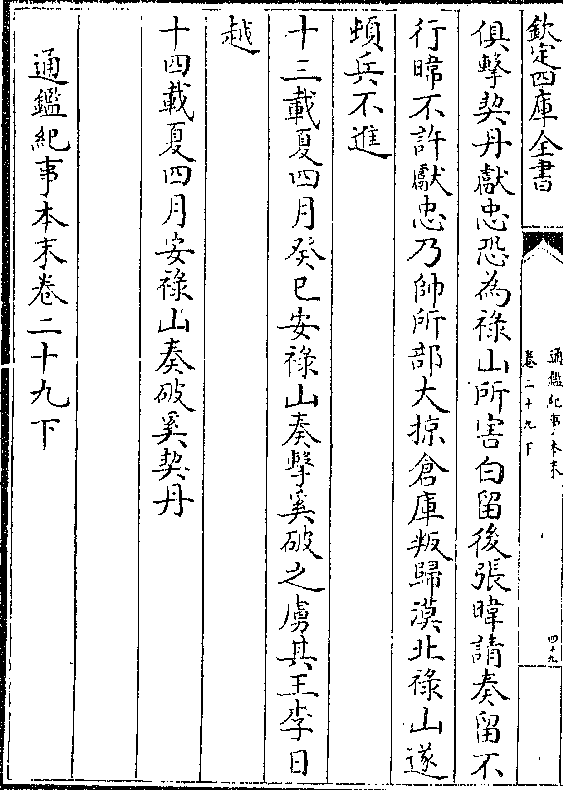 欽定四庫全書
通鑑紀事本末
卷二十九下
四十九
俱擊契丹獻忠恐為祿山所害白留後張暐請奏留不
行暐不許獻忠乃帥所部大掠倉庫叛歸漠北祿山遂
頓兵不進
十三載夏四月癸巳安祿山奏擊奚破之虜其王李日
越
十四載夏四月安祿山奏破奚契丹
通鑑紀事本末卷二十九下